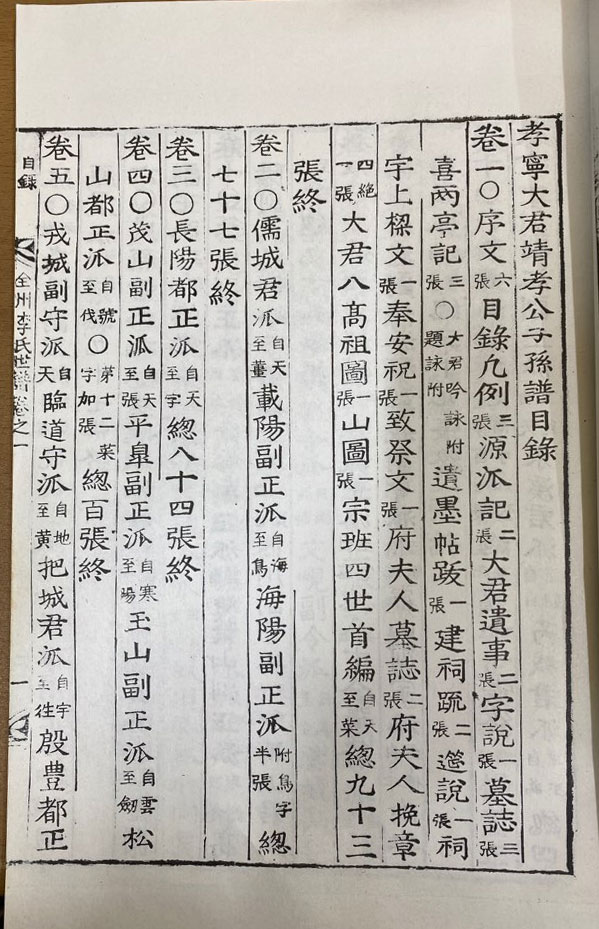 孝寧大君靖孝公子孫譜目錄
卷一〇序文六張目錄凡例三張源派記二張大君遺事二張字說一張墓誌三張
喜雨亭記三張〇大君吟詠附題詠附遺墨帖跋一張建祠疏二張邀說一張祠
宇上樑文一張奉安祝一張致祭文一張府夫人墓誌二張府夫人挽章
四絶一張大君八高祖圖一張山圖一張宗班四世首編自天至菜總九十三
張終
卷二〇儒城君派自天至薑載陽副正派自海至鳥海陽副正派附鳥字半張總
七十七張終
卷三〇長陽都正派自天至字總八十四張終
卷四〇茂山副正派自天至張平皐副正派自寒至陽玉山副正派自雲至劒松
山都正派自號至伐〇第十二菜字加張總百張終
卷五〇戎城副守派自天臨道守派自地至黃把城君派自宇至往殷豊都正
目錄
全州李氏世譜卷之一
一